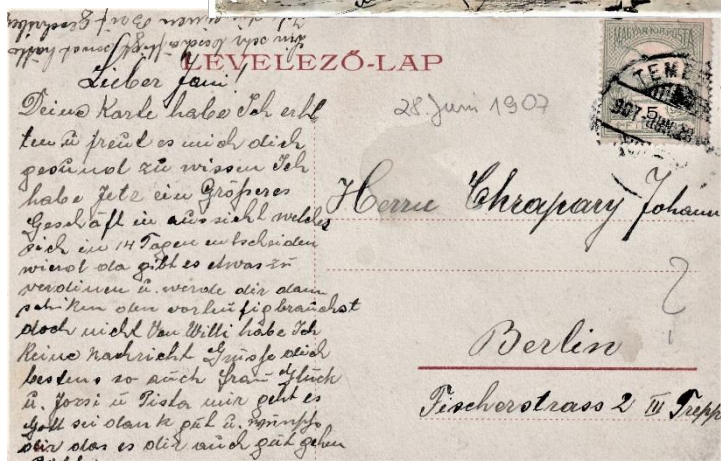 LEVELEZŐ-LAP
MAGYAR KIR. POSTA
TEME
907 JUN 28
5
28. Juni 1907
Lieber Jani!
Deine Karte habe Ich erhl
ten u freut es mich dich
gesund zu wissen Ich
habe Jetz ein Größeres
Geschäft in aussicht welches
sich in 14 Tagen entscheiden
wierd da gibt es etwas zu
verdinen u. werde dir dann
schiken den vorleufig brauchst
doch nicht Von Willi habe Ich
Keine Nachricht Grüsse dich
bestens so auch Frau Glück
u. Jozsi u Pista mir geht es
Gott sei dank gut u. wünsche
dir das es dir auch gut gehen
Herrn Chrapary Johann
?
Berlin
Fischerstrass 2 III Trepp